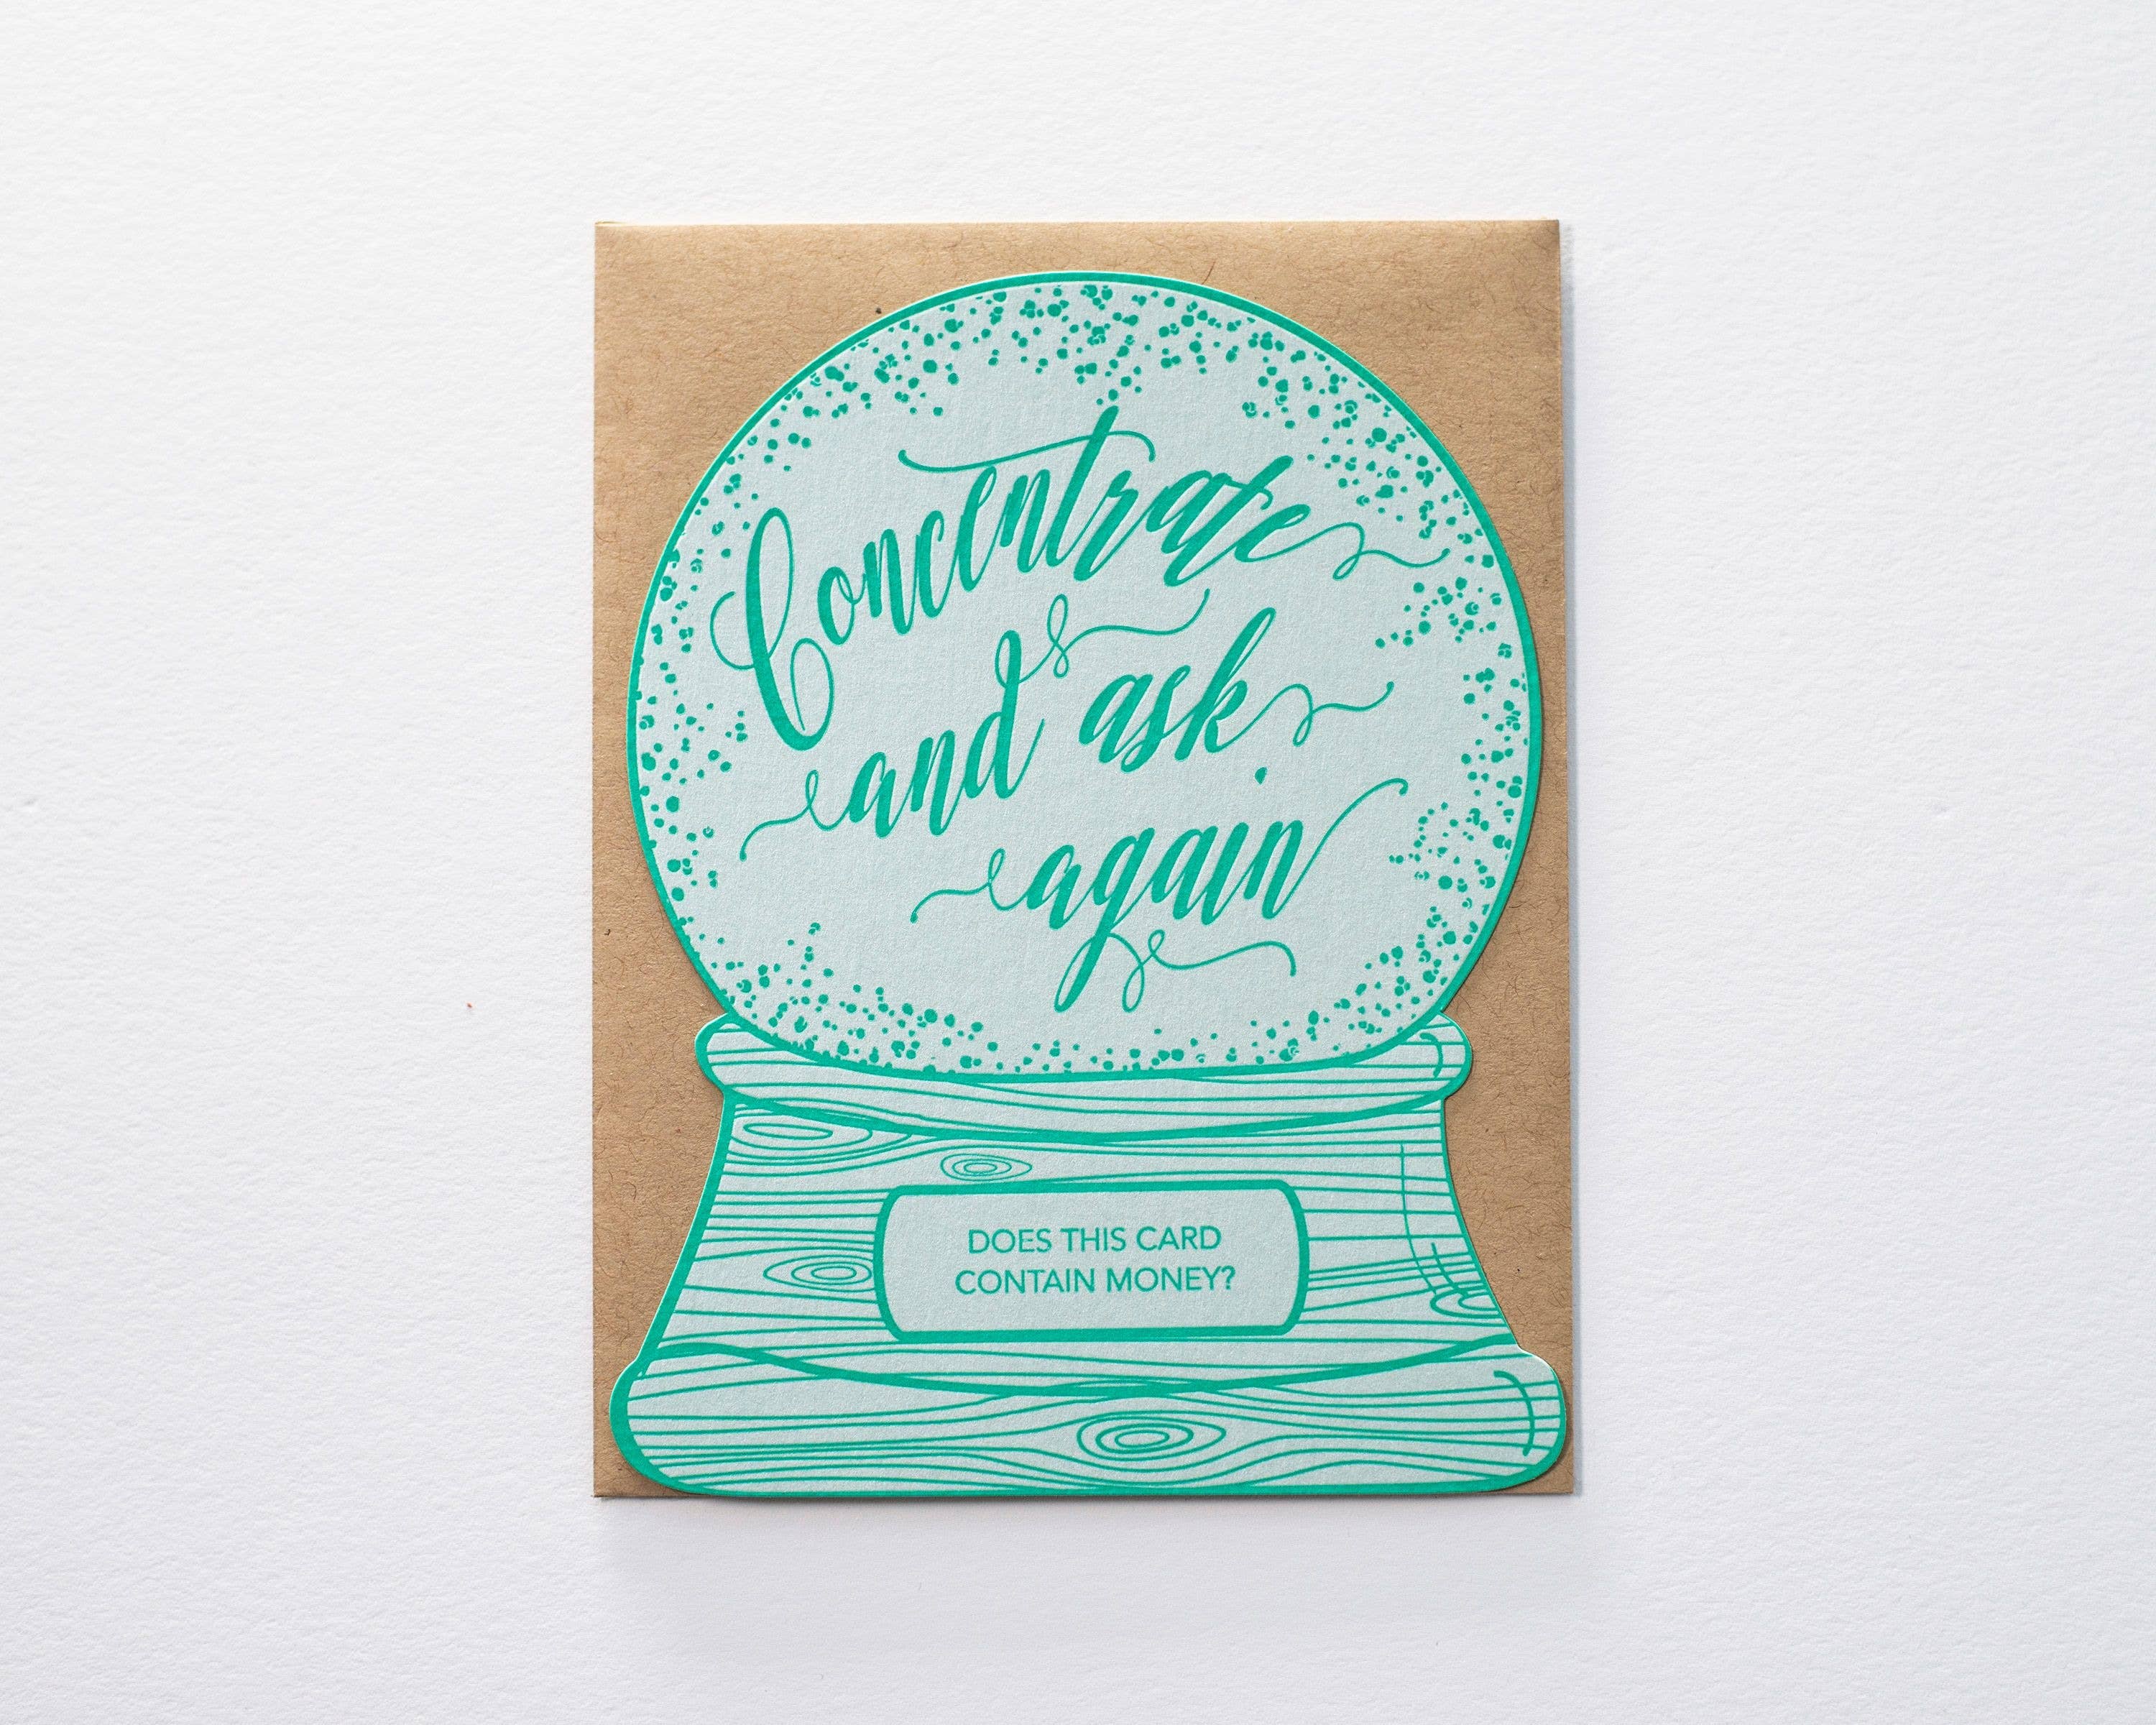 Concentrate
and ask
again
DOES THIS CARD
CONTAIN MONEY?